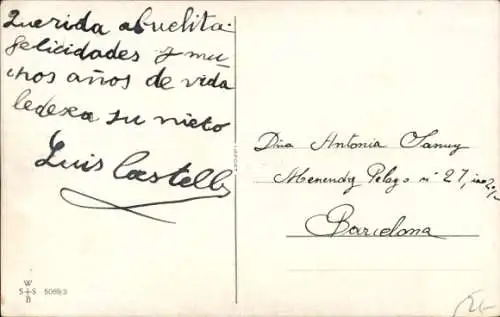 Querida abuelita
felicidades y mu-
chos años de vida
ledesea su nieto
Luis Castells
Dña Antonia
Menendez Pelayo nº 27,
Barcelona
W
S+S
B
5069/3